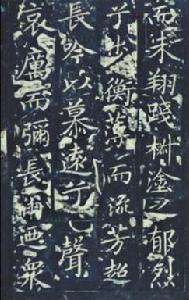 而未翔踐椒塗之郁烈
步衡薄而流芳超
長吟以慕遠兮聲
哀厲而彌長爾迺衆